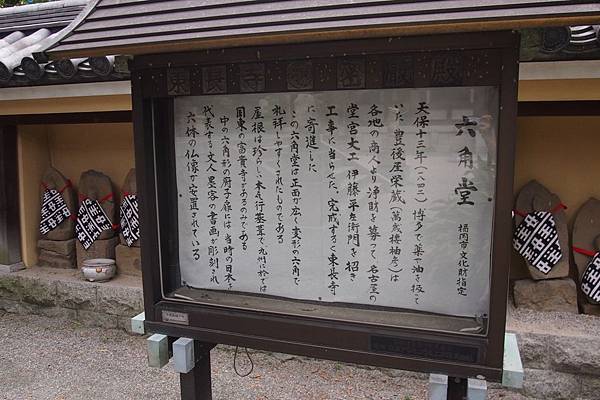 六角堂
福岡市文化財指定
天保十三年(一八四二)博多で薬や油を扱って
いた豊後屋栄蔵(萬歳楼袖彦)は
各地の商人より浄財を募って名古屋の
堂宮大工伊藤平左衛門を招き
工事に当らせた、完成すると東長寺
に寄進した
この六角堂は正面が広く変形の六角で
礼拝しやすくされたものである
屋根は珍らしい本瓦行基葺で九州に於ては
国東の富貴寺があるのみである
中の六角形の厨子扉には当時の日本を
代表する文人墨客の書画が彫刻され
六体の仏像が安置されている